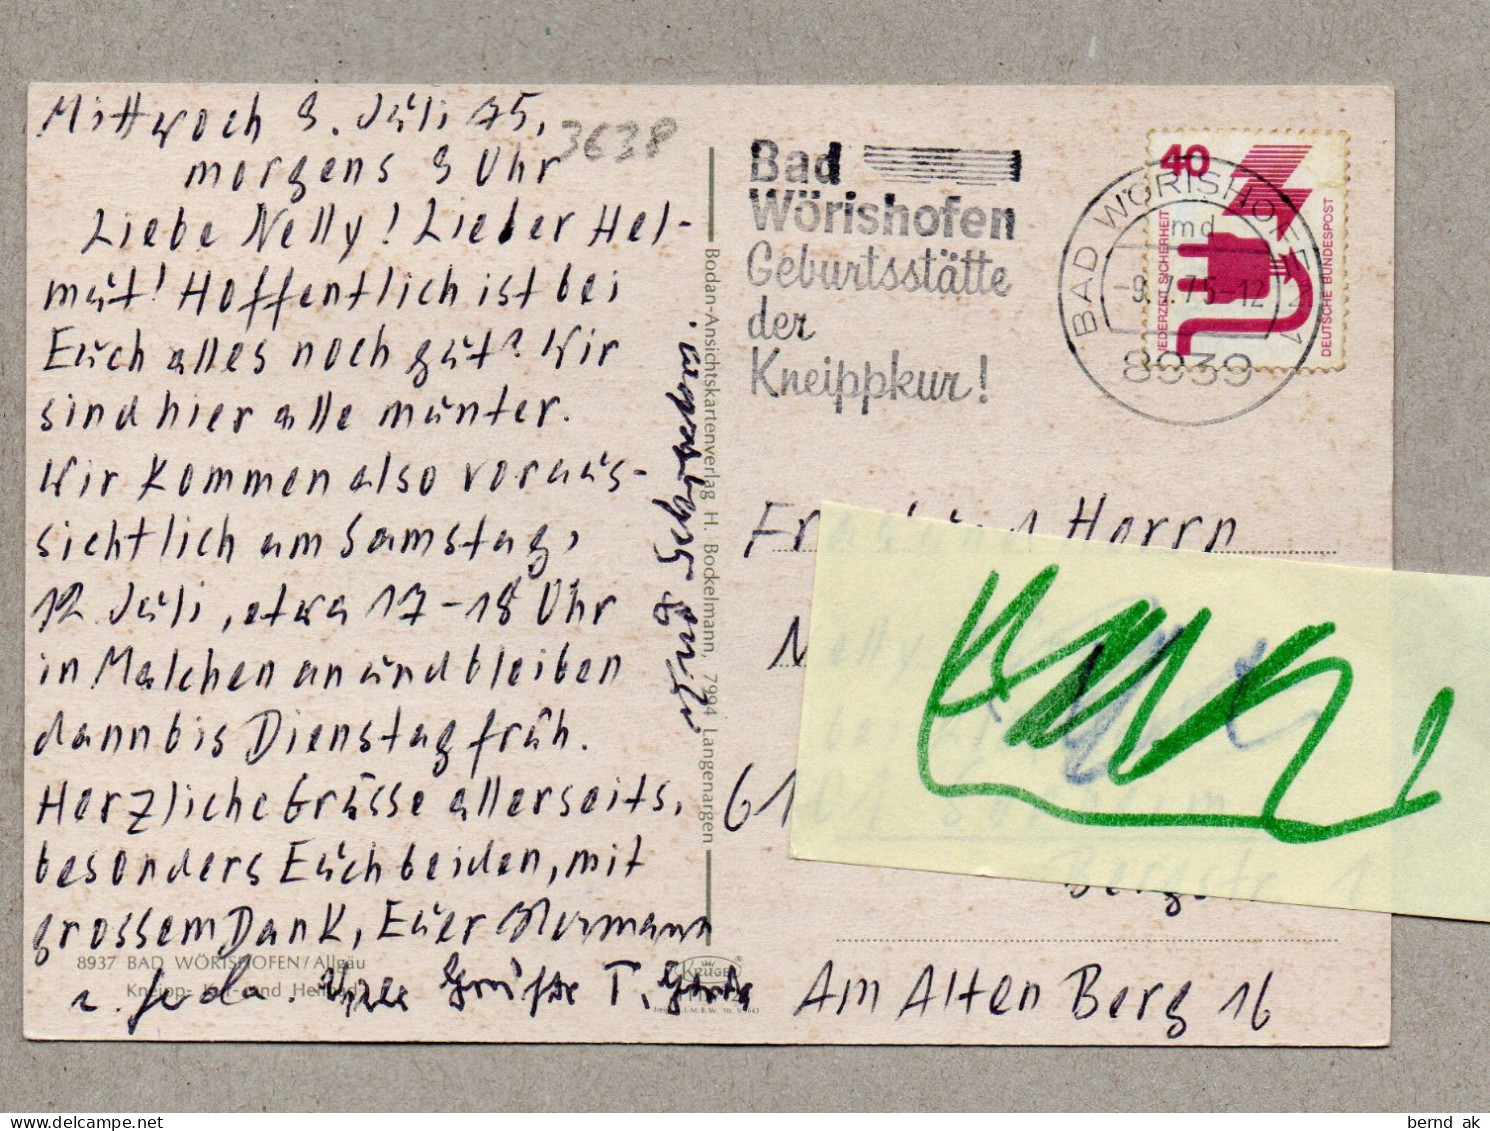 Mittwoch 9. Juli 75,
3638
morgens 9 Uhr
Liebe Nelly! Lieber Hel-
mut! Hoffentlich ist bei
Euch alles noch gut? Wir
sind hier alle munter.
Wir kommen also voraus-
sichtlich am Samstag,
12. Juli, etwa 17-18 Uhr
in Malchen an und bleiben
dann bis Dienstag früh.
Herzliche Grüsse allerseits,
besonders Euch beiden, mit
grossem Dank, Euer Hermann
u. Greda. Viele Grüße T.
8937 BAD WÖRISHOFEN/Allgäu
Kneipp- und
Bodan-Ansichtskartenverlag H. Bockelmann, 7994 Langenargen
KRÜGER
Bad
Wörishofen
Geburtsstätte
der
Kneippkur!
BAD WÖRISHOFEN 1
md
-9.7.75-12
8939
40
JEDERZEIT SICHERHEIT
DEUTSCHE BUNDESPOST
Herrn
61
Bergstr. 1
Am Alten Berg 16
bernd ak